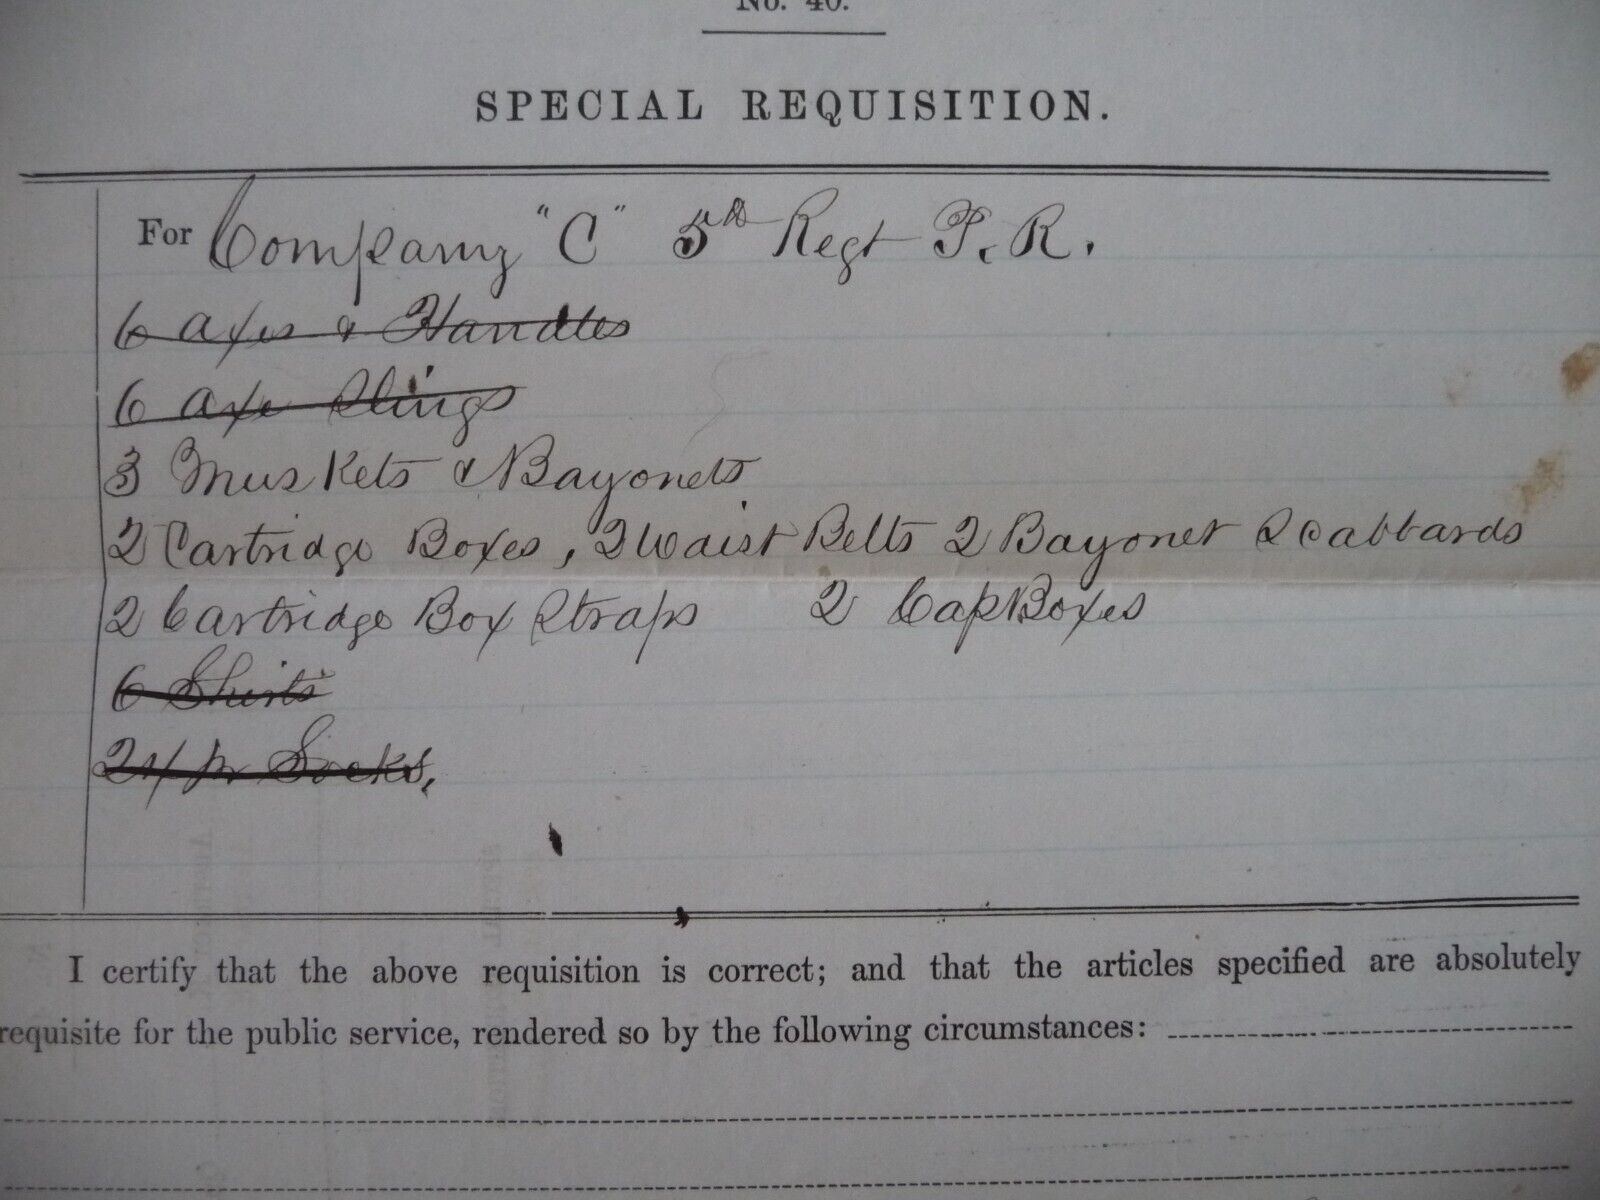 No. 40.
SPECIAL REQUISITION.
For Company "C" 5th Regt P. R.
6 Axes & Handles
6 Axe Slings
3 Muskets & Bayonets
2 Cartridge Boxes, 2 Waist Belts 2 Bayonet Scabbards
2 Cartridge Box Straps 2 Cap Boxes
6 Shirts
24 pr Socks,
I certify that the above requisition is correct; and that the articles specified are absolutely
requisite for the public service, rendered so by the following circumstances: